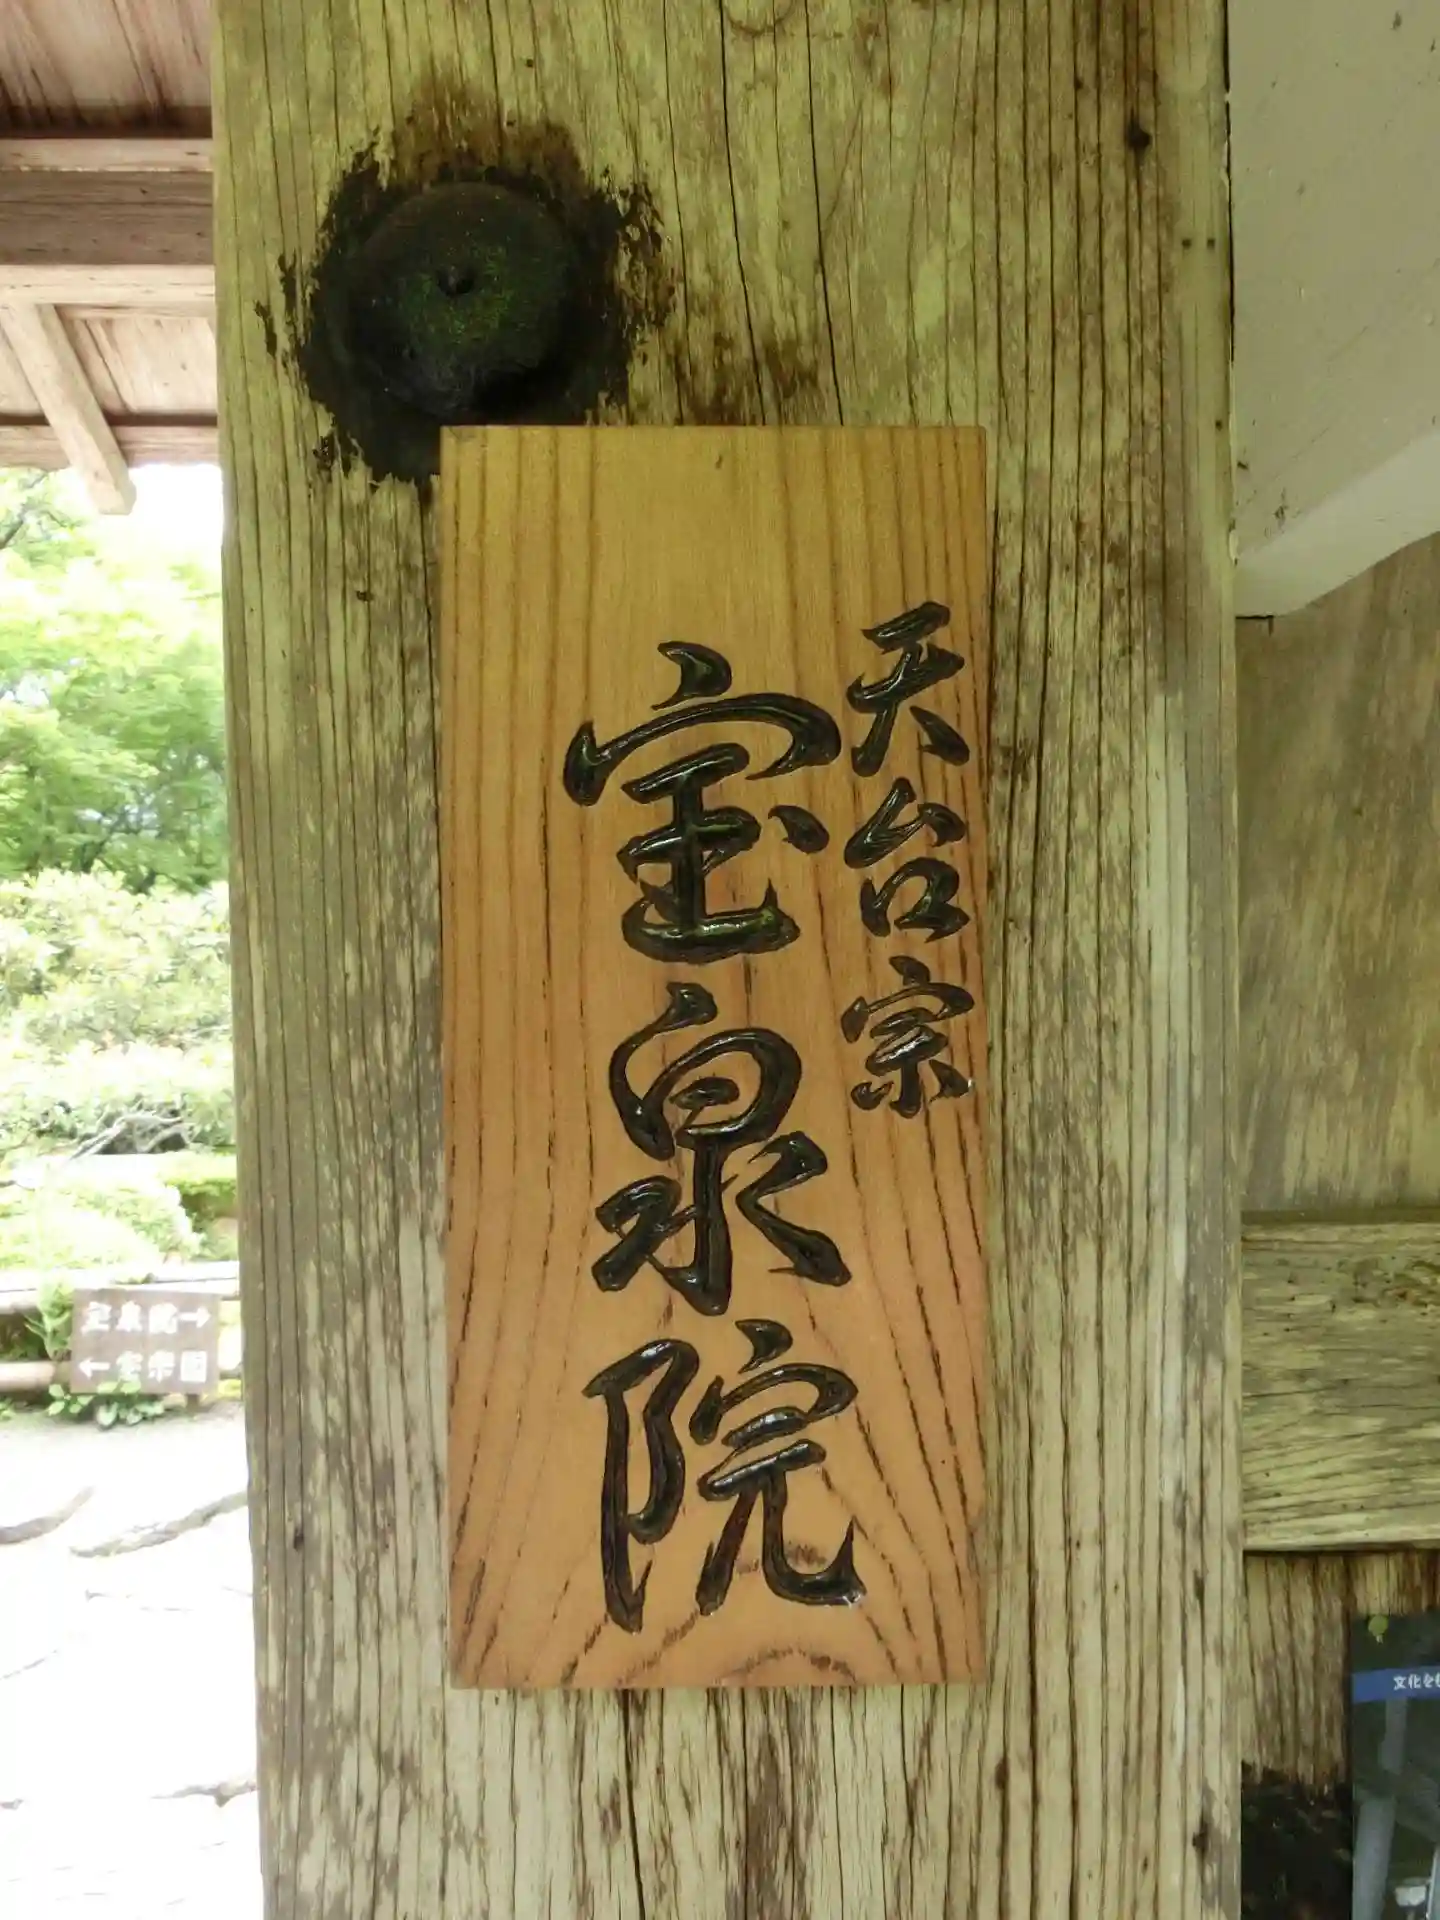 天台宗
宝泉院
宝泉院→
文化を